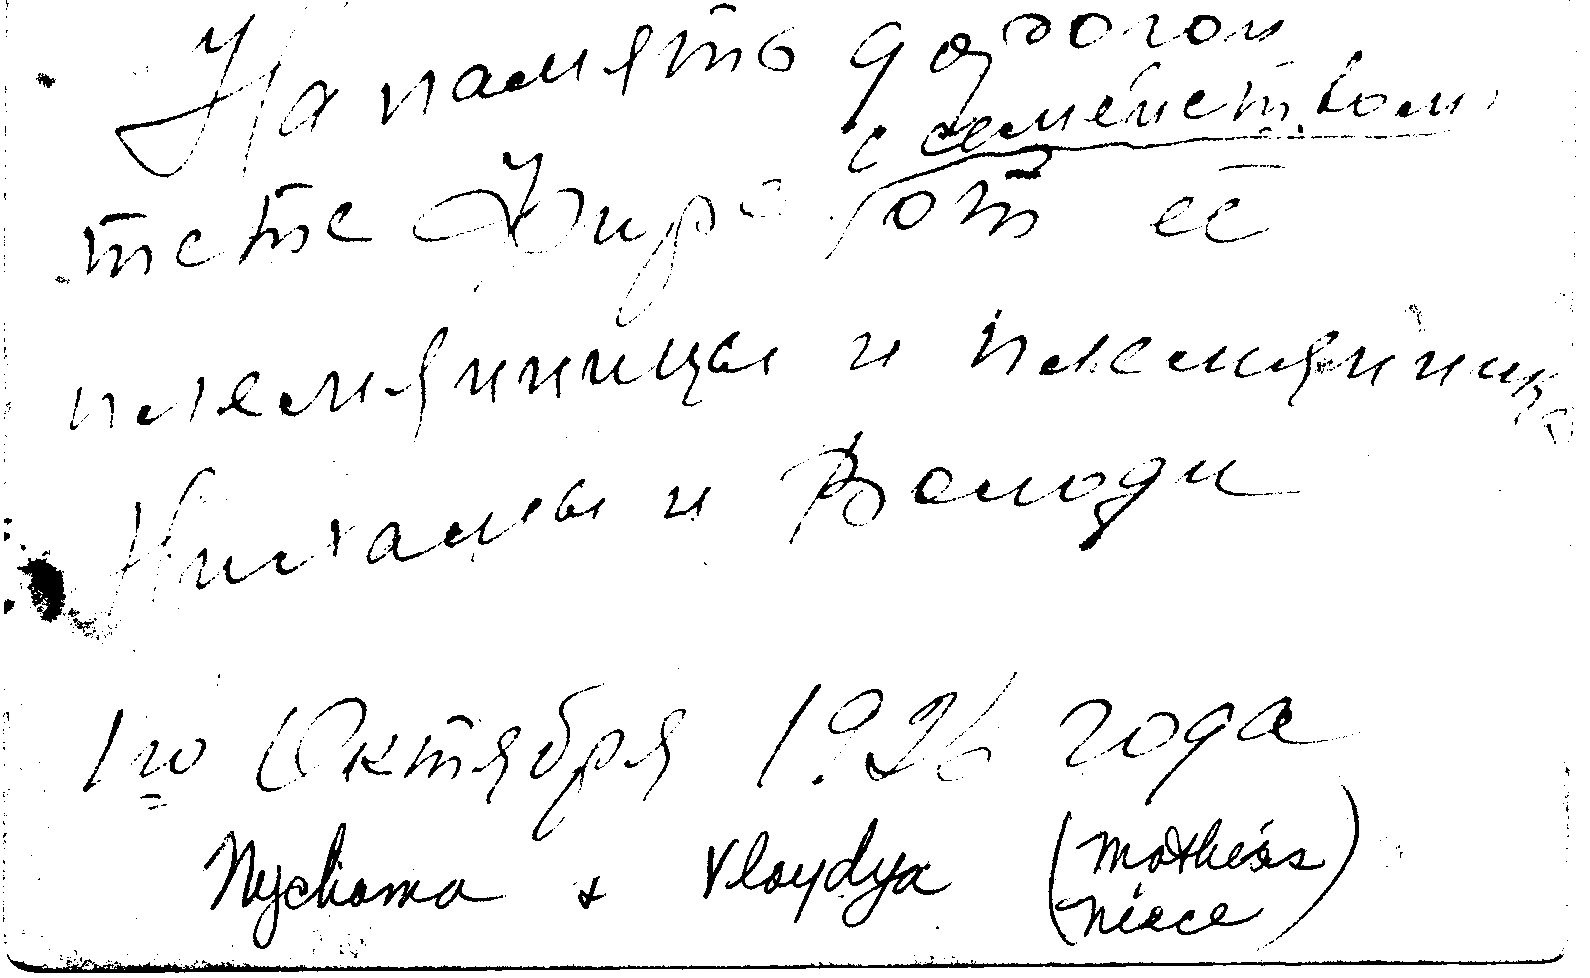 На память дорогой
с семейством
тете от её
племянницы и племянника
Нихамы и Володи
1го Октября 1926 года
Nychoma & Vloydya (mothers
niece)